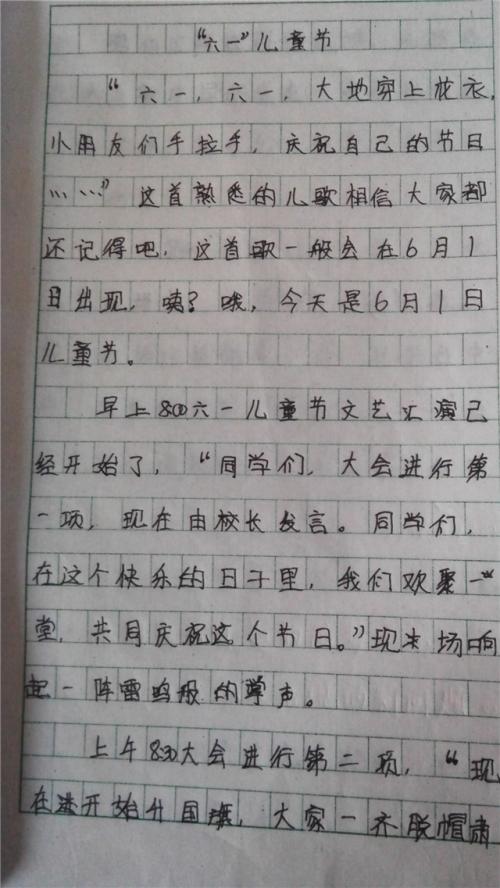 “六一”儿童节
“六一，六一，大地穿上花衣，
小朋友们手拉手，庆祝自己的节日
……”这首熟悉的儿歌相信大家都
还记得吧，这首歌一般会在6月1
日出现，咦？哦，今天是6月1日
儿童节。
早上8:00六一儿童节文艺汇演已
经开始了，“同学们，大会进行第
一项，现在由校长发言。同学们，
在这个快乐的日子里，我们欢聚一
堂，共同庆祝这个节日。”现场响
起一阵雷鸣般的掌声。
上午8:30大会进行第二项，“现
在开始升国旗，大家一齐脱帽肃